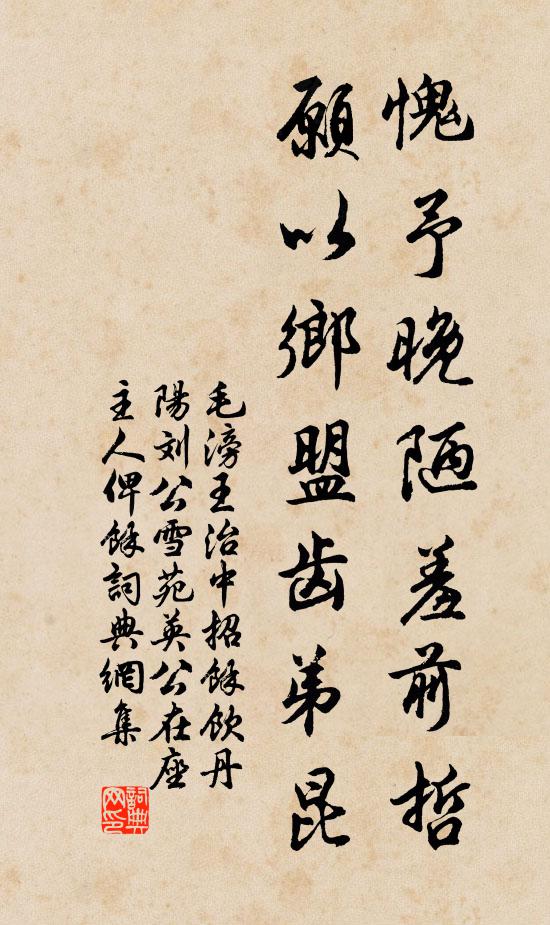 愧予晚陋羞前哲
願以鄉盟齿弟昆
毛滂王治中招餘飲丹
陽刘公雪苑英公在座
主人俾餘詞典網集
詞典
网印